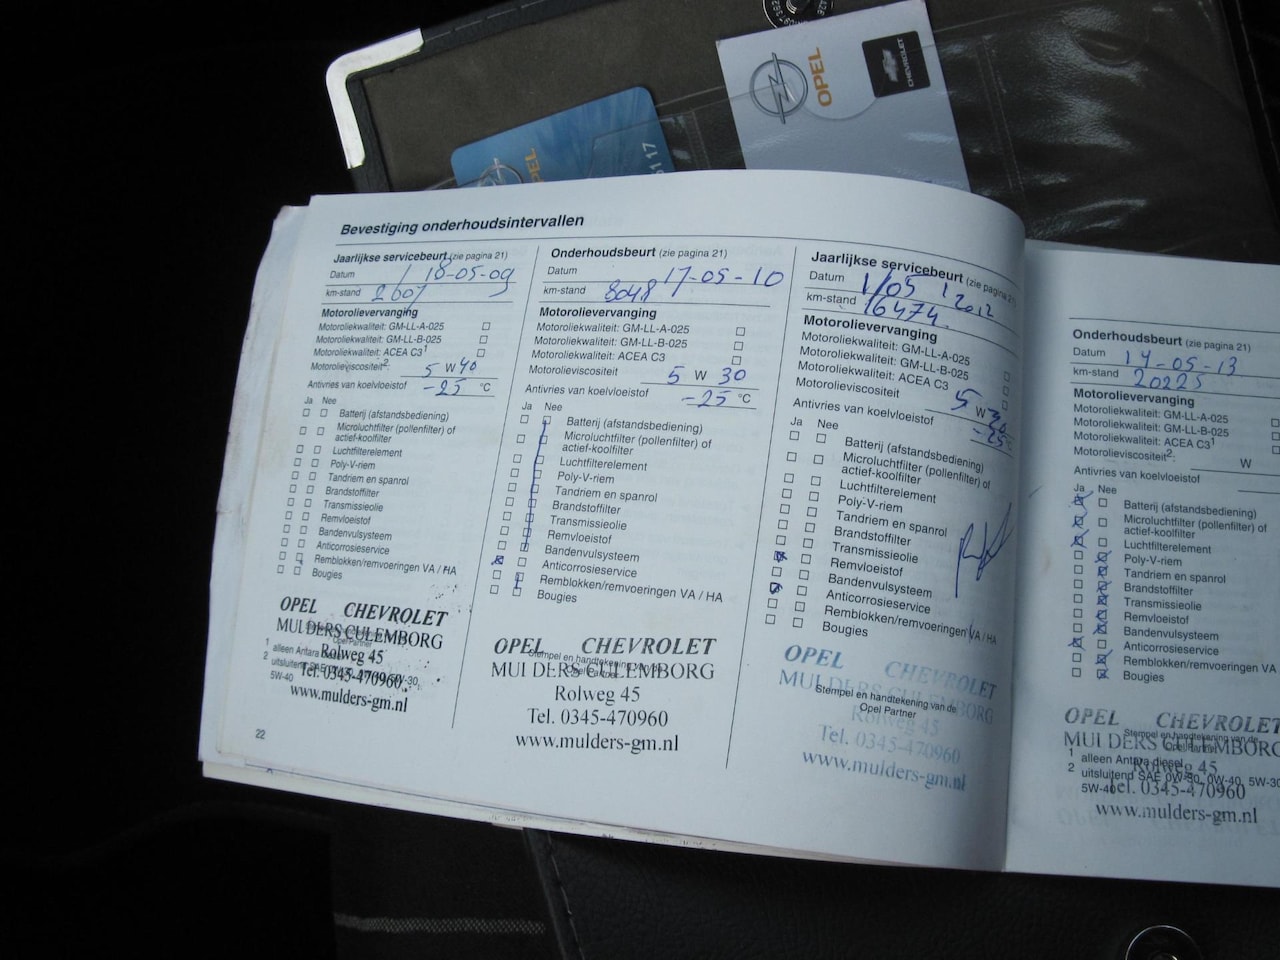 OPEL
CHEVROLET
OPEL
Bevestiging onderhoudsintervallen
Jaarlijkse servicebeurt (zie pagina 21)
Datum 18-05-09
km-stand 2607
Motorolievervanging
Motoroliekwaliteit: GM-LL-A-025
Motoroliekwaliteit: GM-LL-B-025
Motoroliekwaliteit: ACEA C3¹
Motorolieviscositeit²: 5 W 40
Antivries van koelvloeistof -25 °C
Ja Nee
Batterij (afstandsbediening)
Microluchtfilter (pollenfilter) of
actief-koolfilter
Luchtfilterelement
Poly-V-riem
Tandriem en spanrol
Brandstoffilter
Transmissieolie
Remvloeistof
Bandenvulsysteem
Anticorrosieservice
Remblokken/remvoeringen VA / HA
Bougies
OPEL CHEVROLET
MULDERS CULEMBORG
Opel Partner
Rolweg 45
1 alleen Antara
2 uitsluitend SAE
5W-30,
5W-40
Tel. 0345-470960
www.mulders-gm.nl
22
Onderhoudsbeurt (zie pagina 21)
Datum 17-05-10
km-stand 8048
Motorolievervanging
Motoroliekwaliteit: GM-LL-A-025
Motoroliekwaliteit: GM-LL-B-025
Motoroliekwaliteit: ACEA C3
Motorolieviscositeit 5 W 30
Antivries van koelvloeistof -25 °C
Ja Nee
Batterij (afstandsbediening)
Microluchtfilter (pollenfilter) of
actief-koolfilter
Luchtfilterelement
Poly-V-riem
Tandriem en spanrol
Brandstoffilter
Transmissieolie
Remvloeistof
Bandenvulsysteem
Anticorrosieservice
Remblokken/remvoeringen VA / HA
Bougies
OPEL CHEVROLET
Stempel en handtekening van de
Opel Partner
MULDERS CULEMBORG
Rolweg 45
Tel. 0345-470960
www.mulders-gm.nl
Jaarlijkse servicebeurt (zie pagina 21)
Datum 1/05 2012
km-stand 16474
Motorolievervanging
Motoroliekwaliteit: GM-LL-A-025
Motoroliekwaliteit: GM-LL-B-025
Motoroliekwaliteit: ACEA C3
Motorolieviscositeit 5 W 30
Antivries van koelvloeistof -25 °C
Ja Nee
Batterij (afstandsbediening)
Microluchtfilter (pollenfilter) of
actief-koolfilter
Luchtfilterelement
Poly-V-riem
Tandriem en spanrol
Brandstoffilter
Transmissieolie
Remvloeistof
Bandenvulsysteem
Anticorrosieservice
Remblokken/remvoeringen VA / HA
Bougies
OPEL CHEVROLET
MULDERS CULEMBORG
Stempel en handtekening van de
Opel Partner
Rolweg 45
Tel. 0345-470960
www.mulders-gm.nl
Onderhoudsbeurt (zie pagina 21)
Datum 14-05-13
km-stand 20225
Motorolievervanging
Motoroliekwaliteit: GM-LL-A-025
Motoroliekwaliteit: GM-LL-B-025
Motoroliekwaliteit: ACEA C3¹
Motorolieviscositeit²: W
Antivries van koelvloeistof
Ja Nee
Batterij (afstandsbediening)
Microluchtfilter (pollenfilter) of
actief-koolfilter
Luchtfilterelement
Poly-V-riem
Tandriem en spanrol
Brandstoffilter
Transmissieolie
Remvloeistof
Bandenvulsysteem
Anticorrosieservice
Remblokken/remvoeringen VA
Bougies
OPEL CHEVROLET
Stempel en handtekening van de
Opel Partner
MULDERS CULEMBORG
1 alleen Antara diesel
Rolweg 45
2 uitsluitend SAE 0W-30, 0W-40, 5W-30
5W-40
Tel. 0345-470960
www.mulders-gm.nl